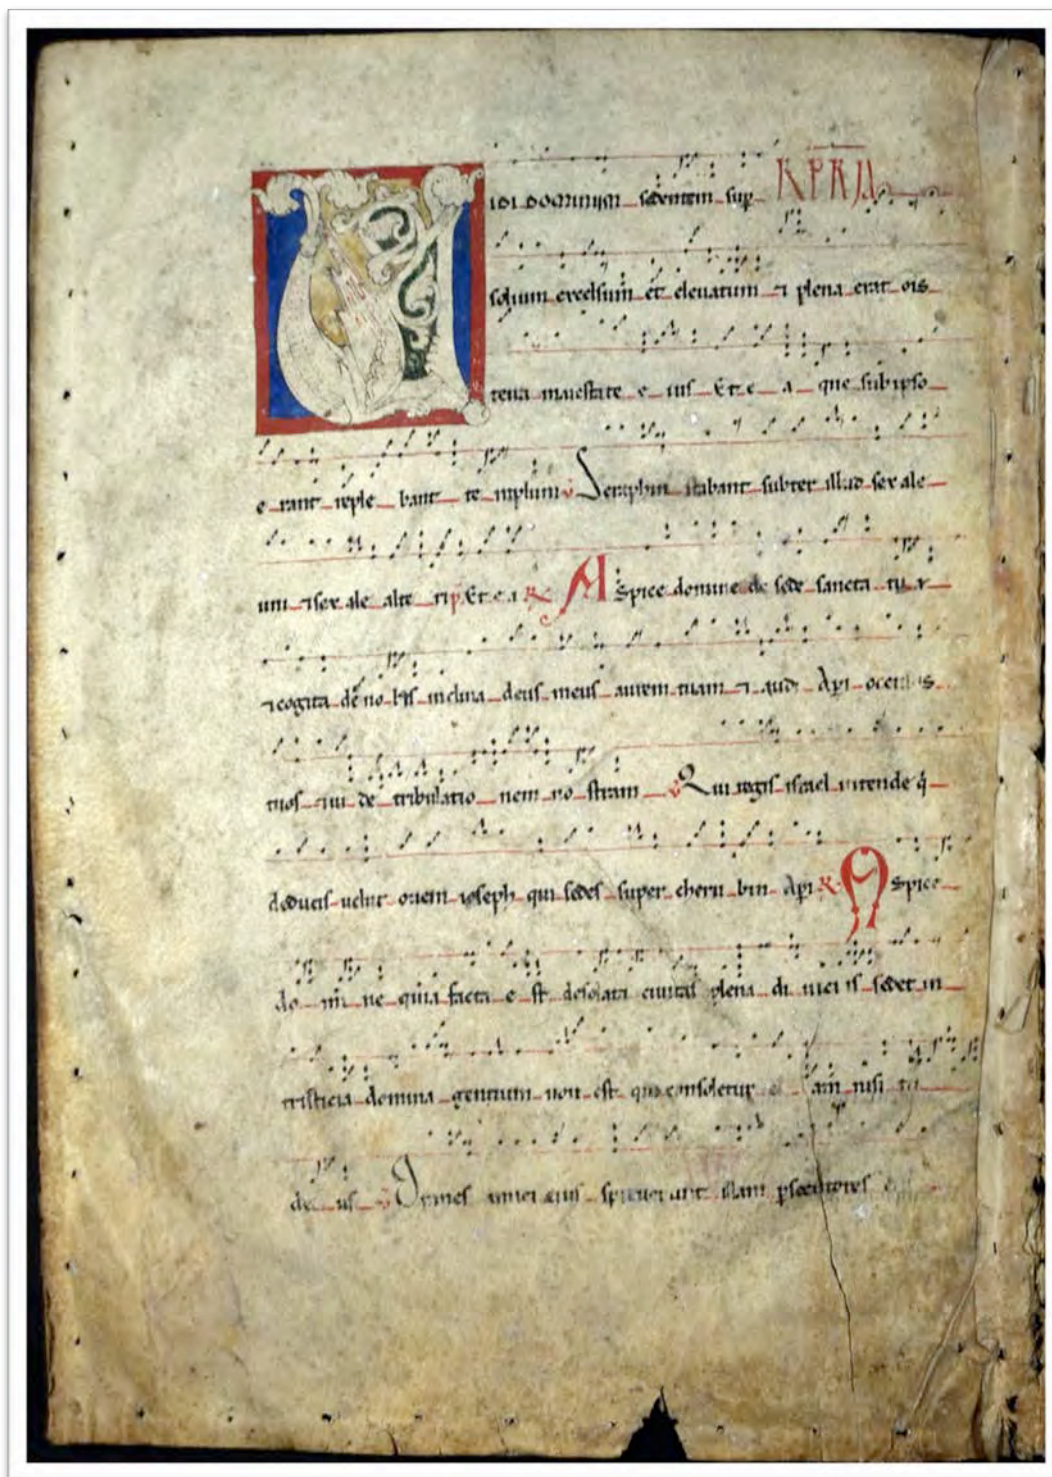 IDI DOMINUM sedentem sup R P R IA
solium excelsum et elevatum ⁊ plena erat ois
terra maiestate e ius Et e a que sub ipso
e rant reple bant te mplum Seraphin stabant subter illud sex ale
uni ⁊ sex ale alte ri Et e a R Aspice domine de sede sancta tu a
⁊ cogita de no bis inclina deus meus aurem tuam ⁊ audi Api oculos
tuos vi de tribulatio nem no stram Qui regis israel intende q
deducis velut ovem ioseph qui sedes super cheru bin Api R Aspice
do mi ne quia facta e st desolata civitas plena di vici is sedet in
tristicia domina gentium non est qui consoletur eam nisi tu
de us Omnes amici eius spreverunt illam psecutores